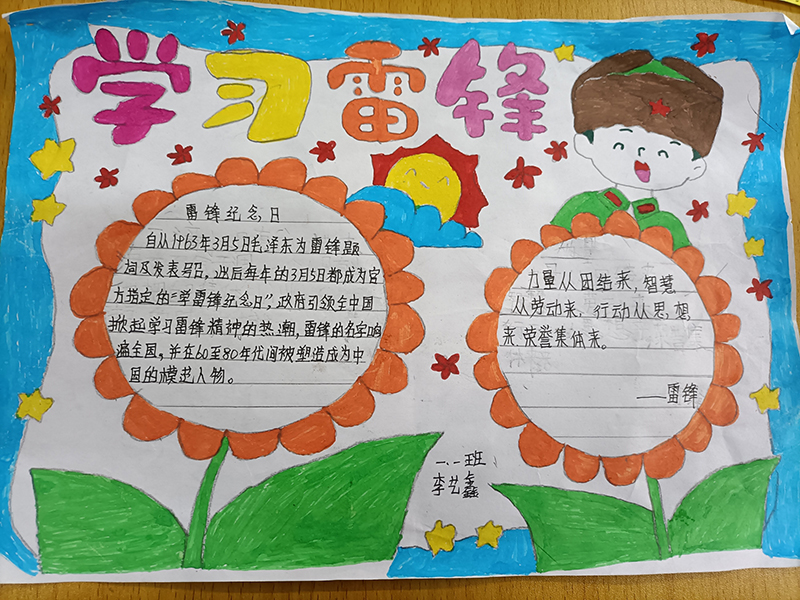 学习雷锋
雷锋纪念日
自从1963年3月5日毛泽东为雷锋题
词及发表号召，此后每年的3月5日都成为官
方指定的“学雷锋纪念日”，政府引领全中国
掀起学习雷锋精神的热潮，雷锋的名字响
遍全国，并在60至80年代间被塑造成为中
国的模范人物。
力量从团结来，智慧
从劳动来，行动从思想
来，荣誉集体来。
——雷锋
一.一班
李艺鑫